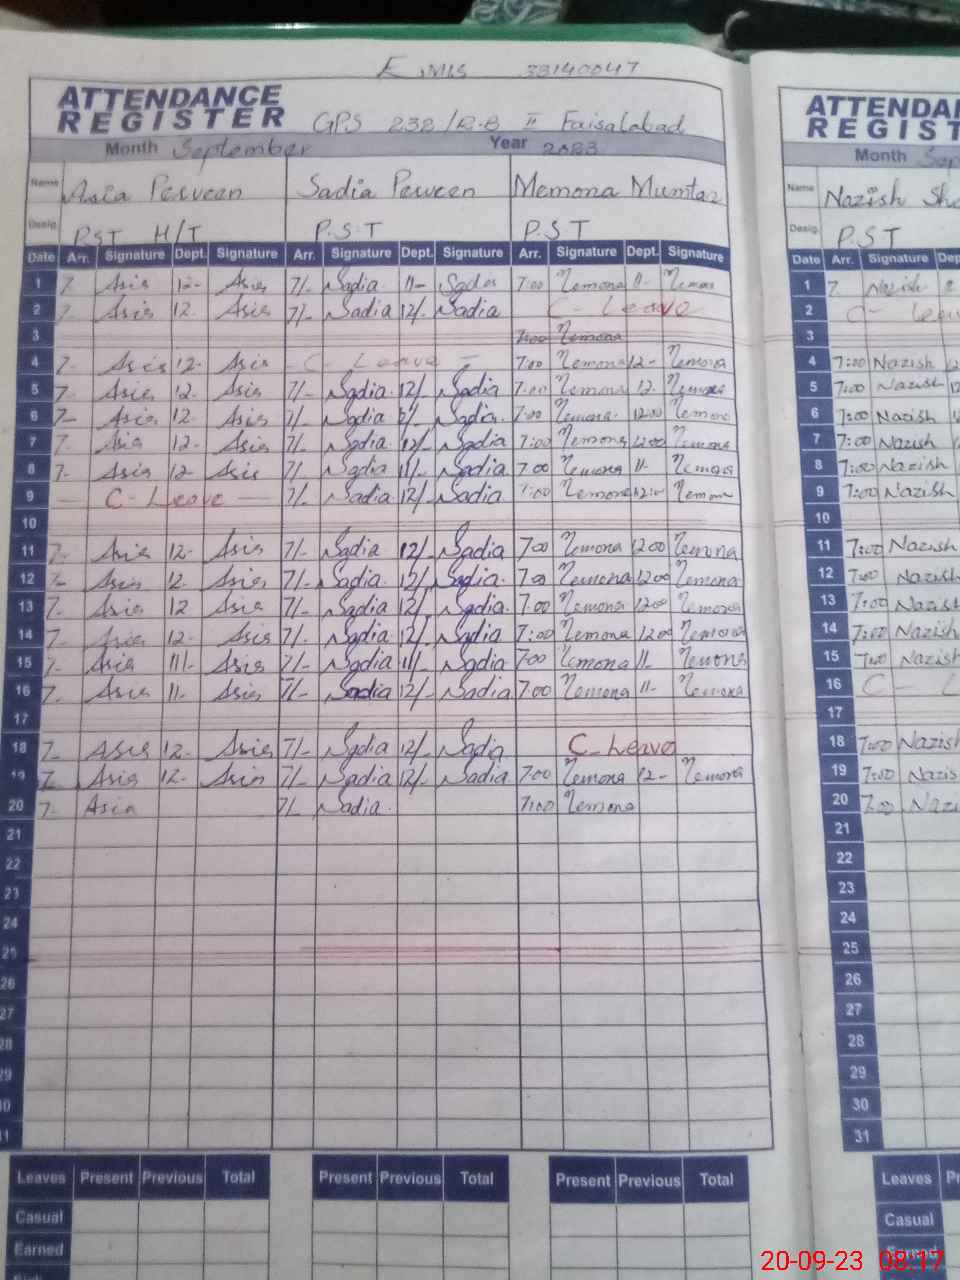 E.MIS 33140047
ATTENDANCE REGISTER GPS 238/R.B II Faisalabad
ATTENDAN REGIST
Month September Year 2023
Month Sep
Name Asia Perveen Sadia Perveen Memona Mumtaz
Name Nazish Sha
Desig. P.S.T H/T P.S.T P.S.T
Desig. P.S.T
Date Arr. Signature Dept. Signature Arr. Signature Dept. Signature Arr. Signature Dept. Signature
Date Arr. Signature Dep
1 7- Asia 12- Asia 7/- Sadia 11- Sadia 7:00 Memona 11- Memona
1 7 Nazish
2 7- Asia 12. Asia 7/- Sadia 12/- Sadia C- Leave
2 C- Leav
3 7:00 Memona
3
4 7- Asia 12- Asia - C- Leave - 7:00 Memona 12- Memona
4 7:00 Nazish 12
5 7- Asia 12- Asia 7/- Sadia 12/- Sadia 7:00 Memona 12- Memona
5 7:00 Nazish 12
6 7- Asia 12- Asia 7/- Sadia 12/- Sadia 7:00 Memona 1200 Memona
6 7:00 Nazish
7 7- Asia 12- Asia 7/- Sadia 12/- Sadia 7:00 Memona 1200 Memona
7 7:00 Nazish
8 7- Asia 12 Asia 7/- Sadia 11/- Sadia 7:00 Memona 11- Memona
8 7:00 Nazish
9 - C- Leave - 7/- Sadia 12/- Sadia 7:00 Memona 12:0 Memona
9 7:00 Nazish
10
10
11 7- Asia 12- Asia 7/- Sadia 12/- Sadia 7:00 Memona 1200 Memona
11 7:00 Nazish
12 7- Asia 12- Asia 7/- Sadia 12/- Sadia 7:00 Memona 1200 Memona
12 7:00 Nazish
13 7- Asia 12 Asia 7/- Sadia 12/- Sadia 7:00 Memona 1200 Memona
13 7:00 Nazish
14 7- Asia 12- Asia 7/- Sadia 12/- Sadia 7:00 Memona 1200 Memona
14 7:00 Nazish
15 7- Asia 11/- Asia 7/- Sadia 11/- Sadia 7:00 Memona 11- Memona
15 7:00 Nazish
16 7- Asia 11- Asia 7/- Sadia 12/- Sadia 7:00 Memona 11- Memona
16 C - L
17
17
18 7- Asia 12- Asia 7/- Sadia 12/- Sadia C- Leave
18 7:00 Nazish
19 7- Asia 12- Asia 7/- Sadia 12/- Sadia 7:00 Memona 12- Memona
19 7:00 Nazis
20 7- Asia 7/- Sadia 7:00 Memona
20 7:00 Nazi
21
21
22
22
23
23
24
24
25
25
26
26
27
27
28
28
29
29
30
30
31
31
Leaves Present Previous Total Present Previous Total Present Previous Total
Leaves Pr
Casual
Casual
Earned
Earned
20-09-23 08:17